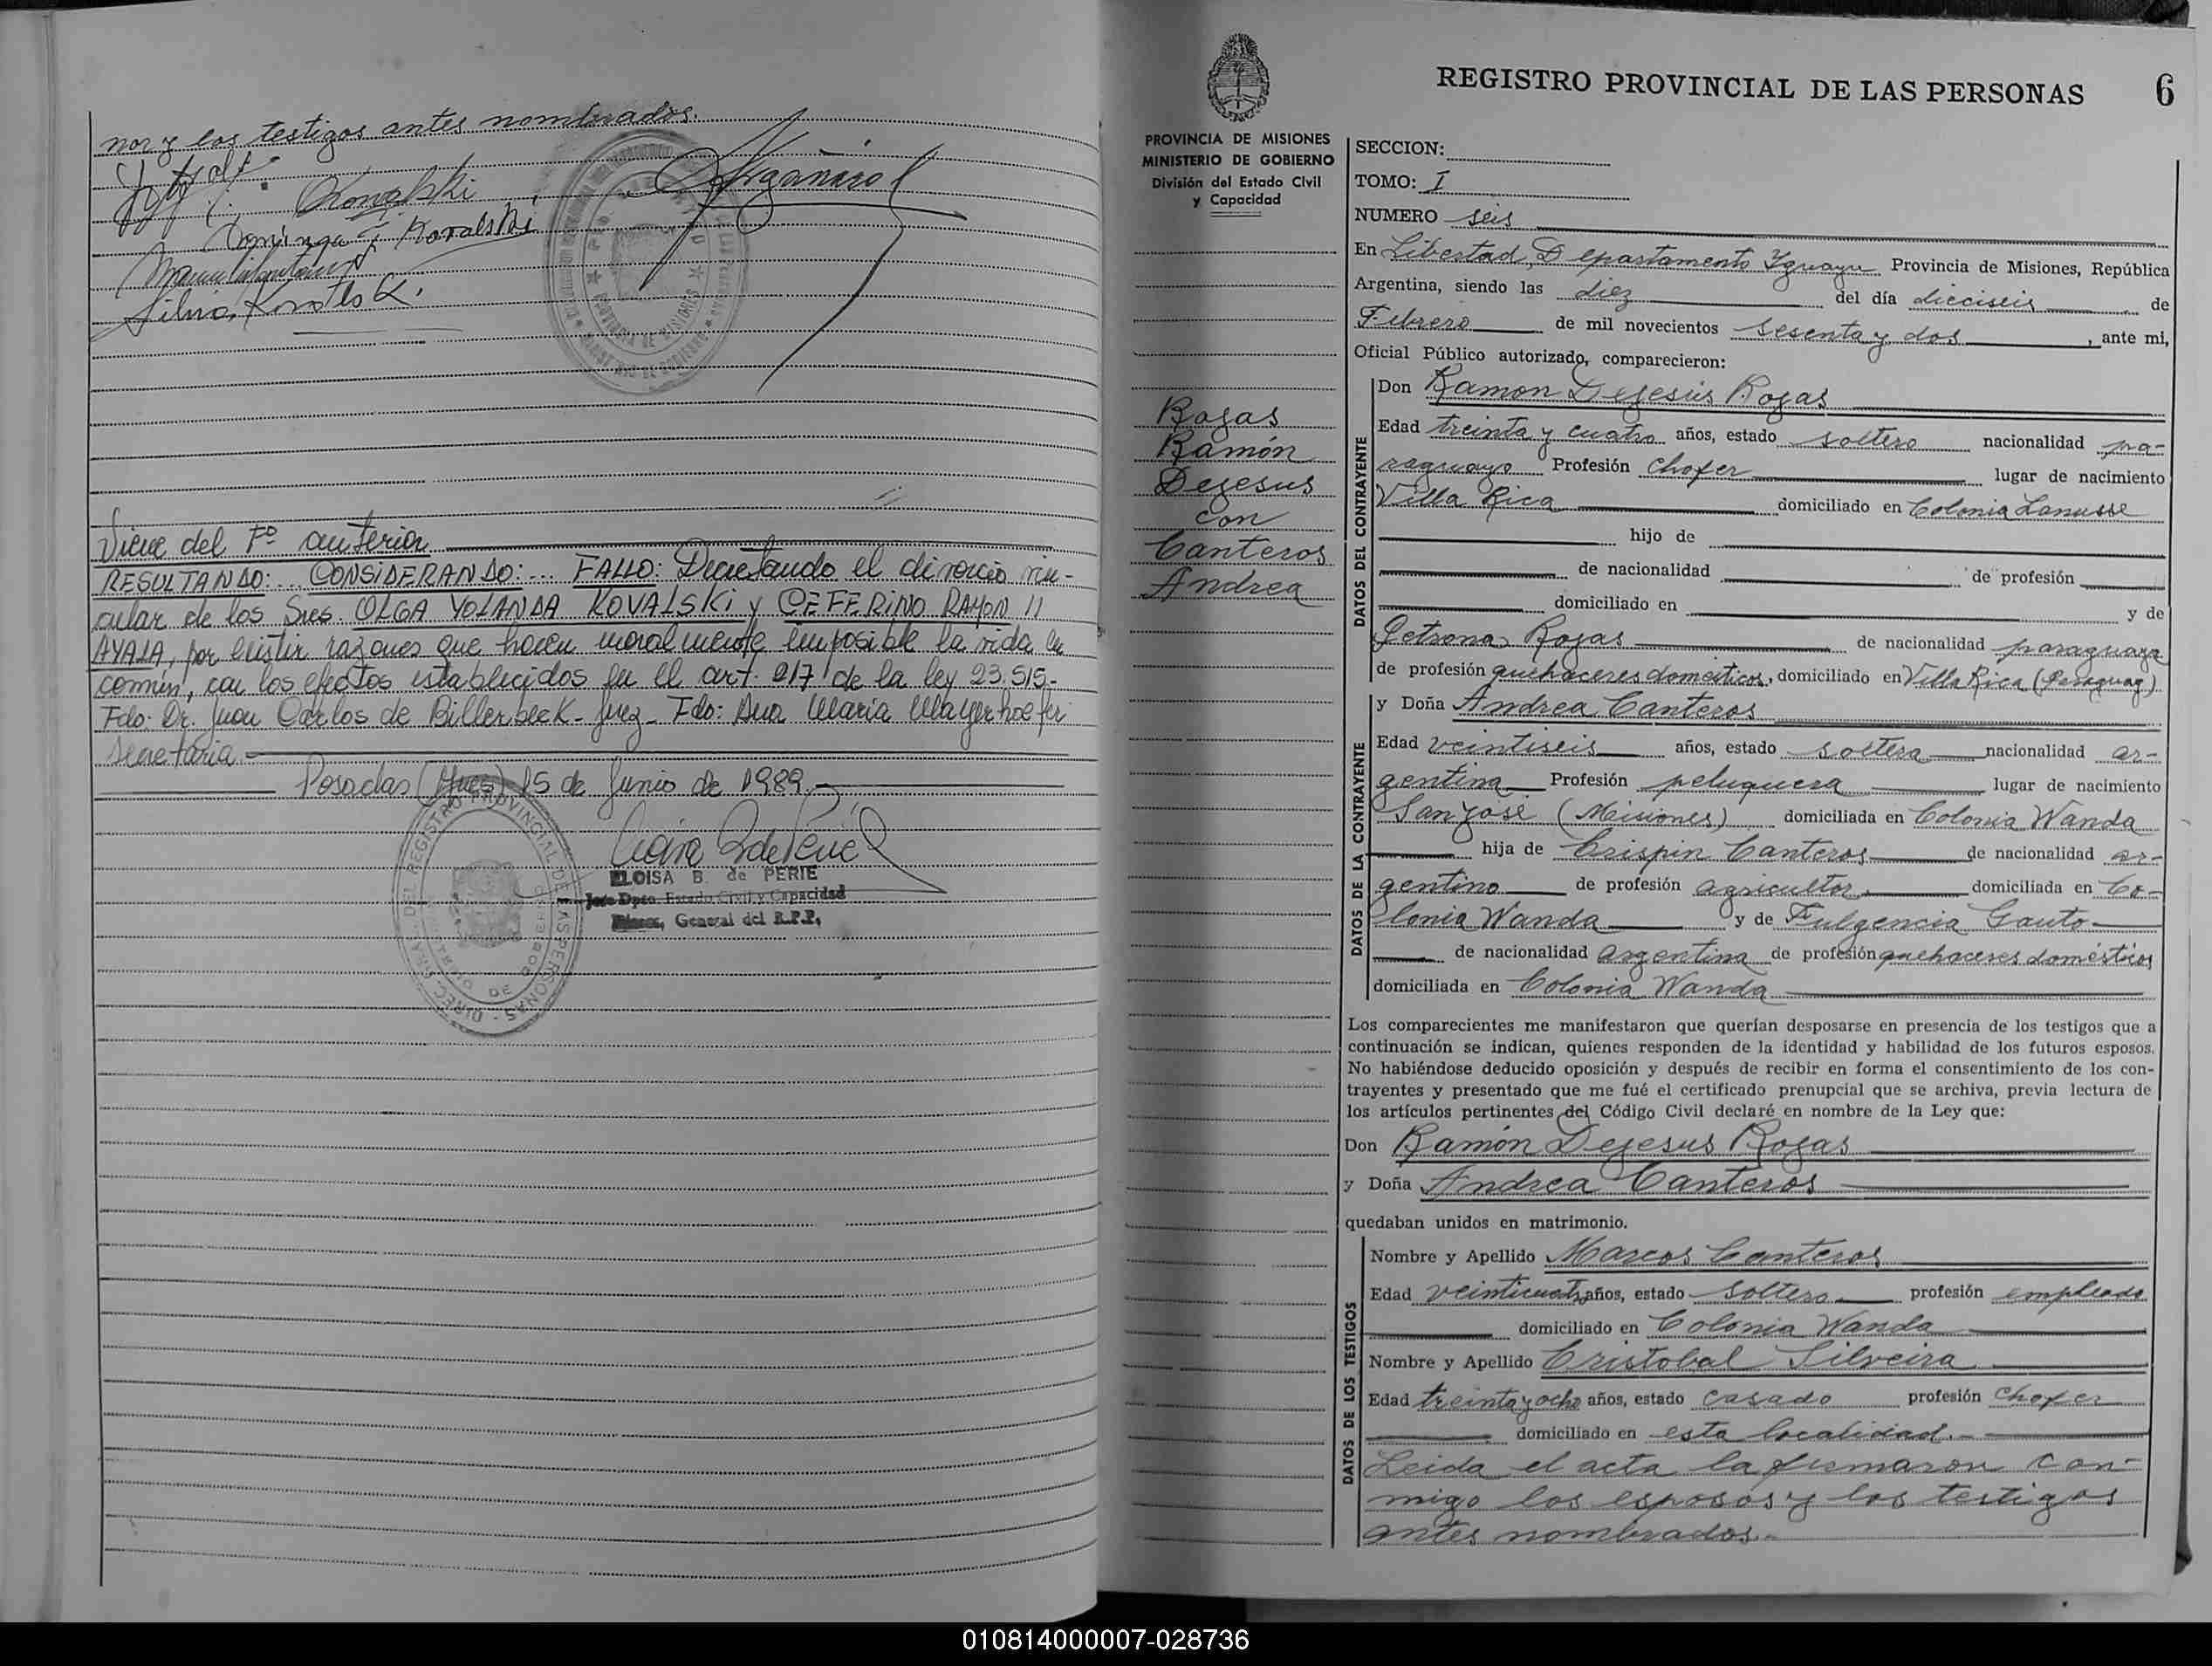 nor y los testigos antes nombrados.
Kowalski
Dominga F. Kovalski
Viene del Fº anterior
RESULTANDO:... CONSIDERANDO:... FALLO: Decretando el divorcio vin-
cular de los Sres. OLGA YOLANDA KOVALSKI y CEFERINO RAMON
AYALA, por existir razones que hacen moralmente imposible la vida en
común, con los efectos establecidos en el art. 217 de la ley 23.515.-
Fdo: Dr. Juan Carlos de Billerbeck - Juez - Fdo: Ana Maria Mayerhoefer
secretaria.
Posadas (Mnes) 15 de Junio de 1989.-
ELOISA B. de PERIE
Jefe Dpto. Estado Civil y Capacidad
General del R.P.P.
REGISTRO PROVINCIAL DE LAS PERSONAS 6
PROVINCIA DE MISIONES
MINISTERIO DE GOBIERNO
División del Estado Civil
y Capacidad
Rojas
Ramón
Dejesus
con
Canteros
Andrea
SECCION:
TOMO: I
NUMERO seis
En Libertad, Departamento Yguazu Provincia de Misiones, República
Argentina, siendo las diez del día dieciseis de
Febrero de mil novecientos sesenta y dos, ante mi,
Oficial Público autorizado, comparecieron:
DATOS DEL CONTRAYENTE
Don Ramon Dejesús Rojas
Edad treinta y cuatro años, estado soltero nacionalidad pa-
raguayo Profesión chofer lugar de nacimiento
Villa Rica domiciliado en Colonia Lanusse
hijo de
de nacionalidad de profesión
domiciliado en y de
Petrona Rojas de nacionalidad paraguaya
de profesión quehaceres domésticos, domiciliado en Villa Rica (Paraguay)
DATOS DE LA CONTRAYENTE
y Doña Andrea Canteros
Edad veintiseis años, estado soltera nacionalidad ar-
gentina Profesión peluquera lugar de nacimiento
San José (Misiones) domiciliada en Colonia Wanda
hija de Crispin Canteros de nacionalidad ar-
gentino de profesión agricultor domiciliada en Co-
lonia Wanda y de Fulgencia Gauto
de nacionalidad argentina de profesión quehaceres domésticos
domiciliada en Colonia Wanda
Los comparecientes me manifestaron que querían desposarse en presencia de los testigos que a
continuación se indican, quienes responden de la identidad y habilidad de los futuros esposos.
No habiéndose deducido oposición y después de recibir en forma el consentimiento de los con-
trayentes y presentado que me fué el certificado prenupcial que se archiva, previa lectura de
los artículos pertinentes del Código Civil declaré en nombre de la Ley que:
Don Ramón Dejesus Rojas
y Doña Andrea Canteros
quedaban unidos en matrimonio.
DATOS DE LOS TESTIGOS
Nombre y Apellido Marcos Canteros
Edad veinticuatro años, estado soltero profesión empleado
domiciliado en Colonia Wanda
Nombre y Apellido Cristobal Silveira
Edad treinta y ocho años, estado casado profesión chofer
domiciliado en esta localidad.-
Leida el acta la firmaron con-
migo los esposos y los testigos
antes nombrados.-
010814000007-028736